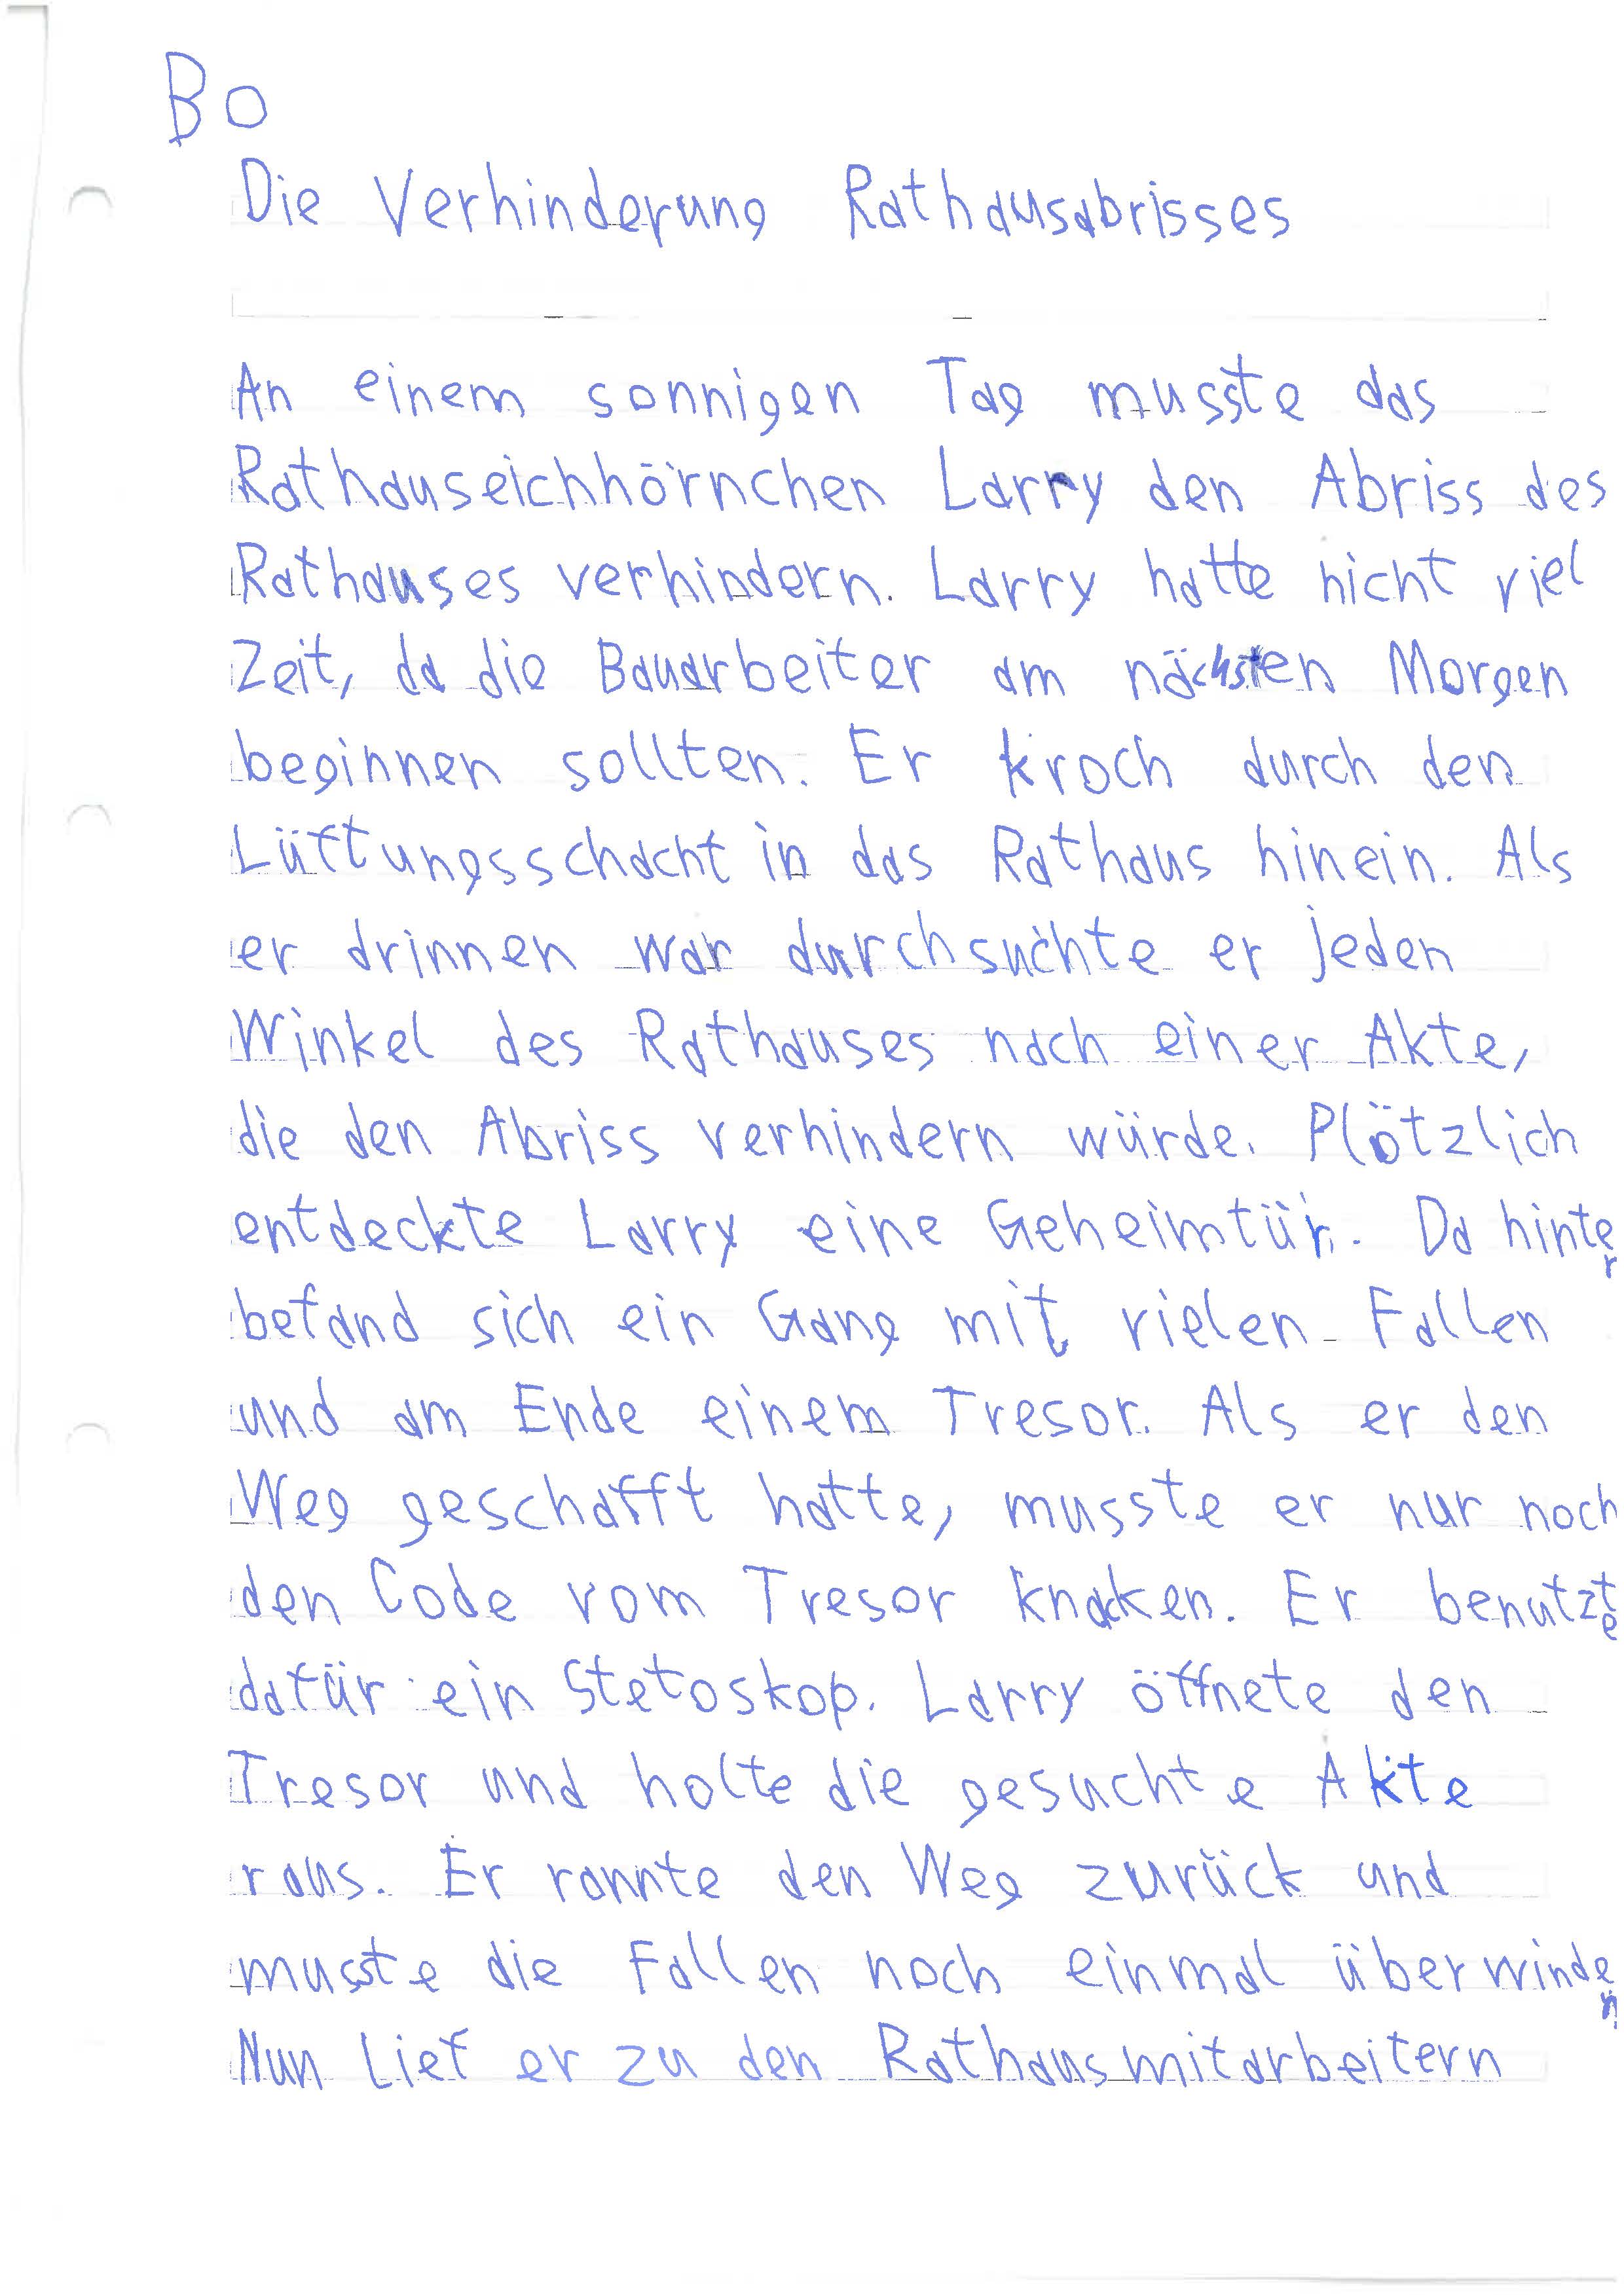 Bo
Die Verhinderung Rathausabrisses
An einem sonnigen Tag musste das
Rathauseichhörnchen Larry den Abriss des
Rathauses verhindern. Larry hatte nicht viel
Zeit, da die Bauarbeiter am nächsten Morgen
beginnen sollten. Er kroch durch den
Lüftungsschacht in das Rathaus hinein. Als
er drinnen war durchsuchte er jeden
Winkel des Rathauses nach einer Akte,
die den Abriss verhindern würde. Plötzlich
entdeckte Larry eine Geheimtür. Da hinter
befand sich ein Gang mit vielen Fallen
und am Ende einem Tresor. Als er den
Weg geschafft hatte, musste er nur noch
den Code vom Tresor knacken. Er benutzte
dafür ein Stetoskop. Larry öffnete den
Tresor und holte die gesuchte Akte
raus. Er rannte den Weg zurück und
musste die Fallen noch einmal überwinden.
Nun lief er zu den Rathausmitarbeitern